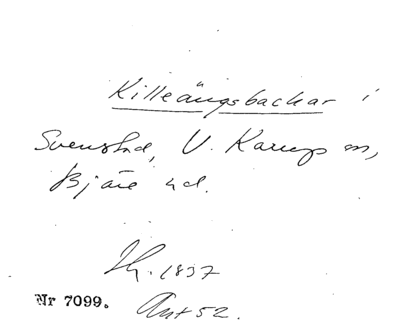 Killeängsbackar i
Svenstad, V. Karup sn,
Bjäre hd.
Lh. 1837
Nr 7099. Ant 52.